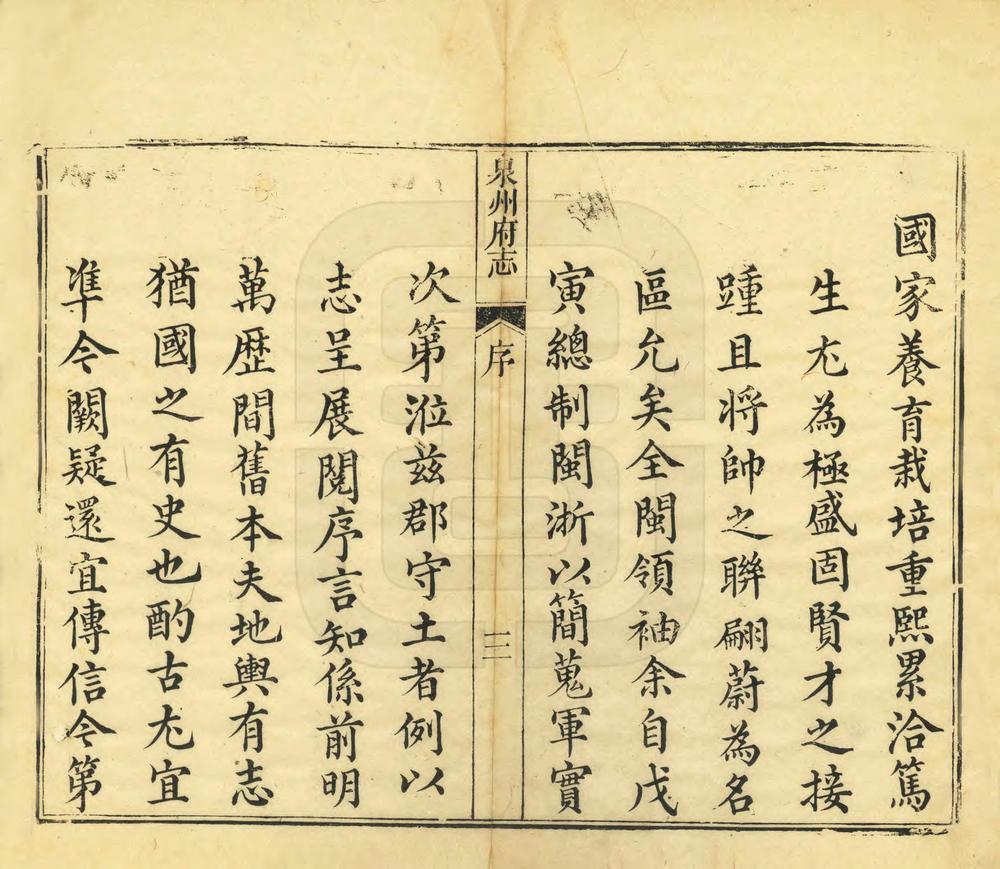 國家養育栽培重熙累洽篤
生尤為極盛固賢才之接
踵且將帥之聯翩蔚為名
區允矣全閩領袖余自戊
寅總制閩浙以簡蒐軍實
泉州府志
序
三
次第涖茲郡守土者例以
志呈展閱序言知係前明
萬歷間舊本夫地輿有志
猶國之有史也酌古尤宜
準今闕疑還宜傳信今第